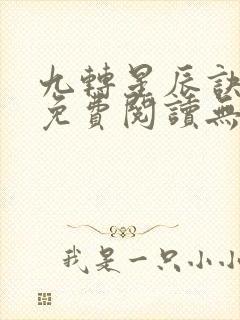 九轉星辰訣
免費閱讀無
我是一只小小